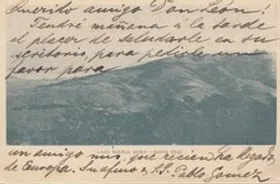 Querido amigo Don León!
Tendré mañana á la tarde
el placer de saludarle en su
escritorio, para pedirle un
favor para
LAGO BUENOS AIRES - SANTA CRUZ
un amigo mío, que recien ha llegado
de Europa. Su afmo y S.S. Pablo Gomez